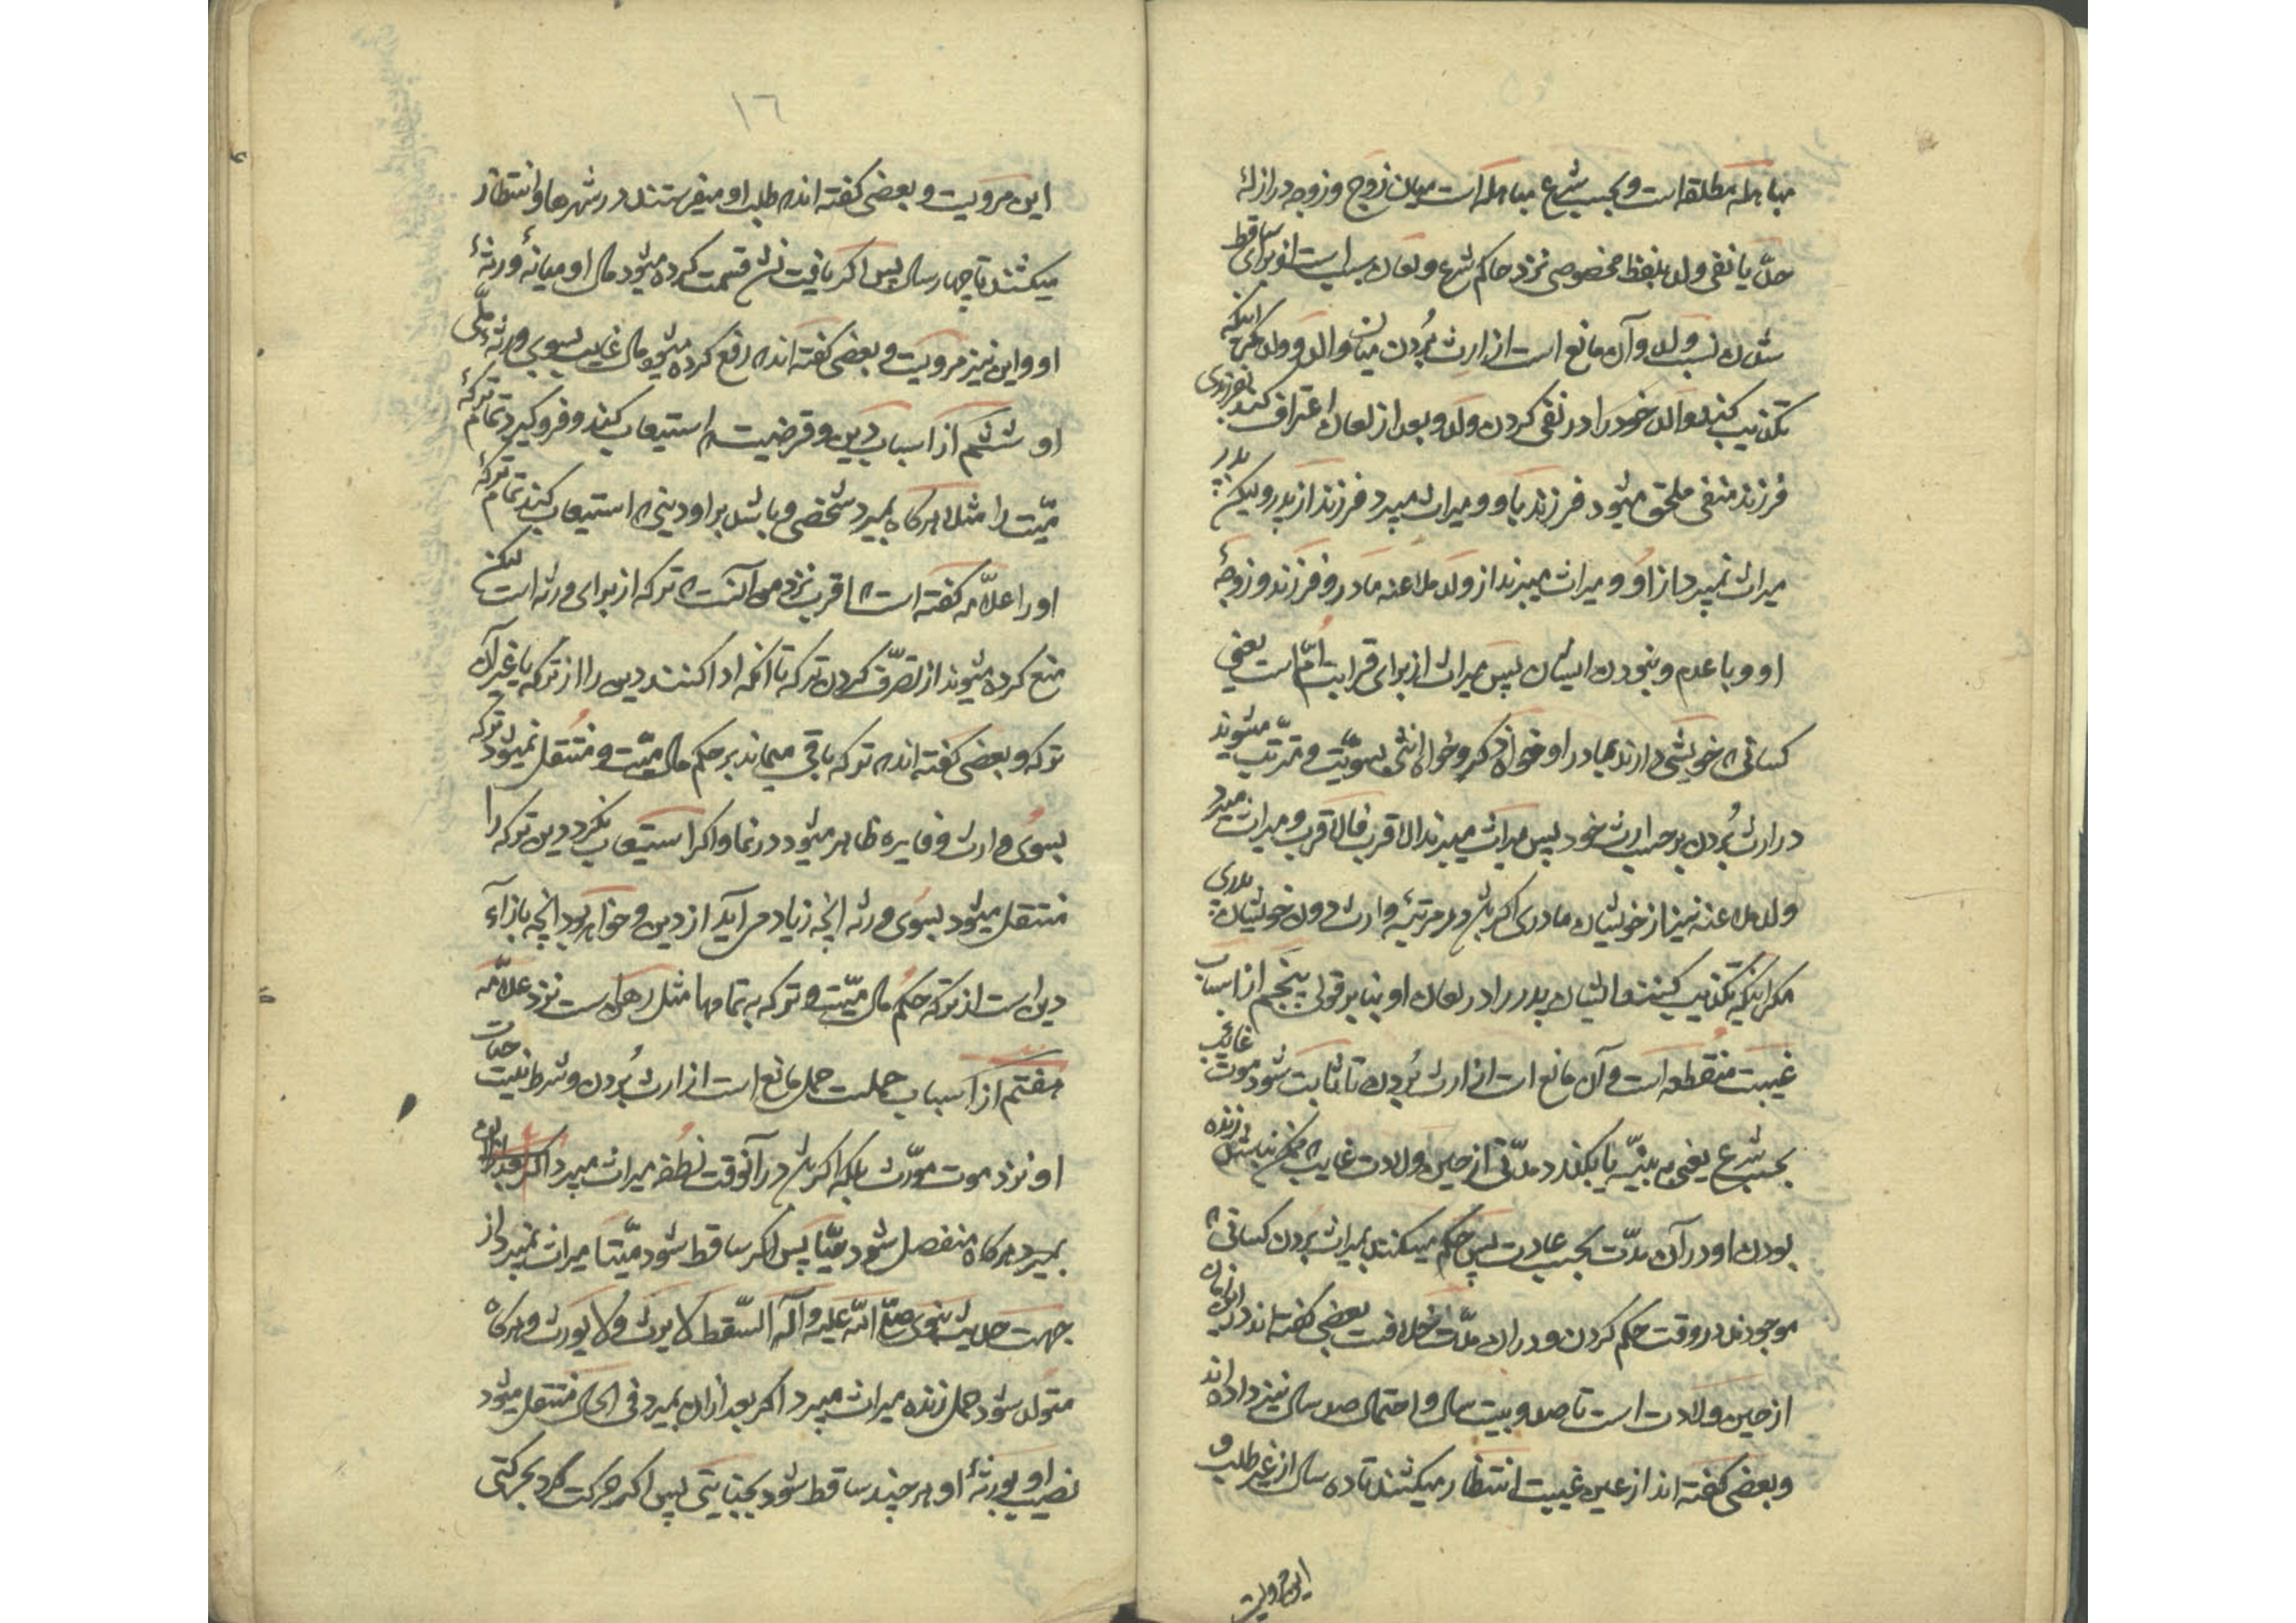 مباهله مطلقه است و بحسب شرع مباهله است میان زوج و زوجه در ازلهٔ
حدّ یا نفی ولد بلفظ مخصوص نزد حاکم شرع و لعان سبب است از برای ساقط
شدن نسب ولد و آن مانع است از ارث بُردن میان والد و ولد مکر اینکه
تکذیب کند والد خود را در نفی کردن ولد و بعد از لعان اعتراف کند بفرزندی
فرزند منفی ملحق میشود فرزند باو و میراث میبرد فرزند از پدر و لیکن پدر
میراث نمیبرد از او و میراث میبرند از ولد ملاعنه مادر و فرزند و زوجهٔ
او و با عدم و بنودن ایشان پس میراث از برای قرابت امّ است یعنی
کسانی که خویشی دارند بمادر او خواه ذکر و خواه انثی بسویّت و مترتب میشوند
در ارث بُردن بر حسب ارث خود پس میراث میبرند الاقرب فالاقرب و میراث میبرد
ولد ملاعنه نیز از خویشان مادری اکر باشد در مرتبهٔ وارث دون خویشان پدری
مکر اینکه تکذیب کنند ایشان پدر را در لعان او بنا بر قولی پنجم از اسباب
غیبت منقطعه است و آن مانع است از ارث بُردن تا ثابت شود موت غائب
بحسب شرع یعنی به بیّنه یا بکذرد مدّتی از حین ولادت غایب که ممکن نباشد زنده
بودن او در آن مدّت بحسب عادت پس حکم میکنند بمیراث بُردن کسانی که
موجودند در وقت حکم کردن و در ان مدّت خلافت بعضی کفته‌اند در این زمان
از حین ولادت است تا صد و بیست سال و احتمال صد سال نیز داده‌اند
و بعضی کفته‌اند از عین غیبت انتظار میکشند تا ده سال از غیر طلب و
این مرویت
۱٦
این مرویت و بعضی کفته‌اند که طلب او میفرستند در شهرها و انتظار
میکشند تا چهار سال پس اکر یافت نشد قسمت کرده میشود مال او میانهٔ ورثهٔ
او و این نیز مرویت و بعضی کفته‌اند که رفع کرده میشود مال غایب بسوی ورثهٔ ملّی
او ششم از اسباب دین و قرضیست که استیعاب کند و فروکیرد تمام ترکهٔ
میّت را مثلا هرکاه بمیرد شخصی و باشد بر او دینی که استیعاب کند تمام ترکهٔ
او را علاّمه کفته است که اقرب نزد من آنست که ترکه از برای ورثه است لیکن
منع کرده میشوند از تصرّف کردن ترکه تا آنکه ادا کنند دین را از ترکه یا غیر آن
ترکه و بعضی کفته‌اند که ترکه باقی میماند بر حکم مال میّت و منتقل نمیشود ترکه
بسوی وارث و فایده ظاهر میشود در نما و اکر استیعاب نکرد دین ترکه را
منتقل میشود بسوی ورثه انچه زیاد می آید از دین و خواهد بود انچه بازآء
دین است از ترکه حکم مال میّت و ترکه به تمامها مثل رهن است نزد علاّمه
هفتم از اسباب حملست حمل مانع است از ارث بُردن و شرط نیست حیات
او نزد موت مورّث بلکه اکر باشد در آنوقت نطفه میراث میبرد اکر بعد از آن
بمیرد هرکاه منفصل شود حیّا پس اکر ساقط شود میّتا میراث نمیبرد از
جهت حدیث نبوی صلّی اللّه علیه و آله السّقط لا یرث و لا یورث و هرکاه
متولد شود حمل زنده میراث میبرد اکر بعد از ان بمیرد فی الحال منتقل میشود
نصیب او بورثهٔ او هر چند ساقط شود بجنایتی پس اکر حرکت کرد بحرکتی